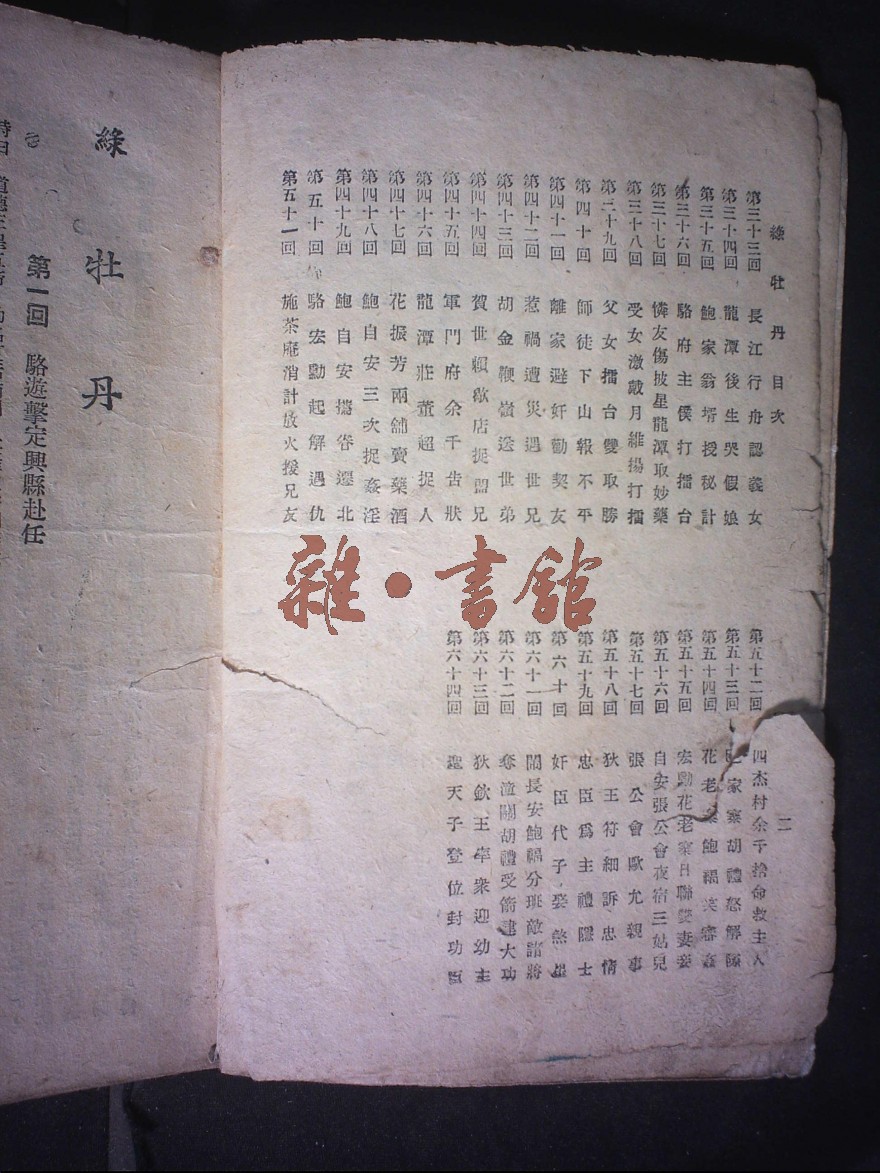 綠牡丹 目次
二
第三十三回 長江行舟認義女
第三十四回 龍潭後生哭假娘
第三十五回 鮑家翁壻授秘計
第三十六回 駱府主僕打擂台
第三十七回 憐友傷披星龍潭取妙藥
第三十八回 受女激戴月維揚打擂
第三十九回 父女擂台雙取勝
第四十回 師徒下山報不平
第四十一回 離家避奸勸契友
第四十二回 惹禍遭災遇世兄
第四十三回 胡金鞭嶺送世弟
第四十四回 賀世賴歇店捉盟兄
第四十五回 軍門府余千告狀
第四十六回 龍潭莊董超捉人
第四十七回 花振芳兩舖賣藥酒
第四十八回 鮑自安三次捉姦淫
第四十九回 鮑自安攜眷遷北
第五十回 駱宏勳起解遇仇
第五十一回 施茶庵消計放火援兄友
第五十二回 四杰村余千捨命救主人
第五十三回 巴家寨胡禮怒解隊
第五十四回 花老寨鮑福笑審姦
第五十五回 宏勳花老寨日聯雙妻妾
第五十六回 自安張公會夜宿三姑兒
第五十七回 張公會歐尤親事
第五十八回 狄王符細訴忠情
第五十九回 忠臣為主禮隱士
第六十回 奸臣代子娶煞星
第六十一回 鬧長安鮑福分班敵諸將
第六十二回 奪潼關胡禮受箭建大功
第六十三回 狄欽王率衆迎幼主
第六十四回 聖天子登位封功臣
綠牡丹
第一回 駱遊擊定興縣赴任
雜·書館